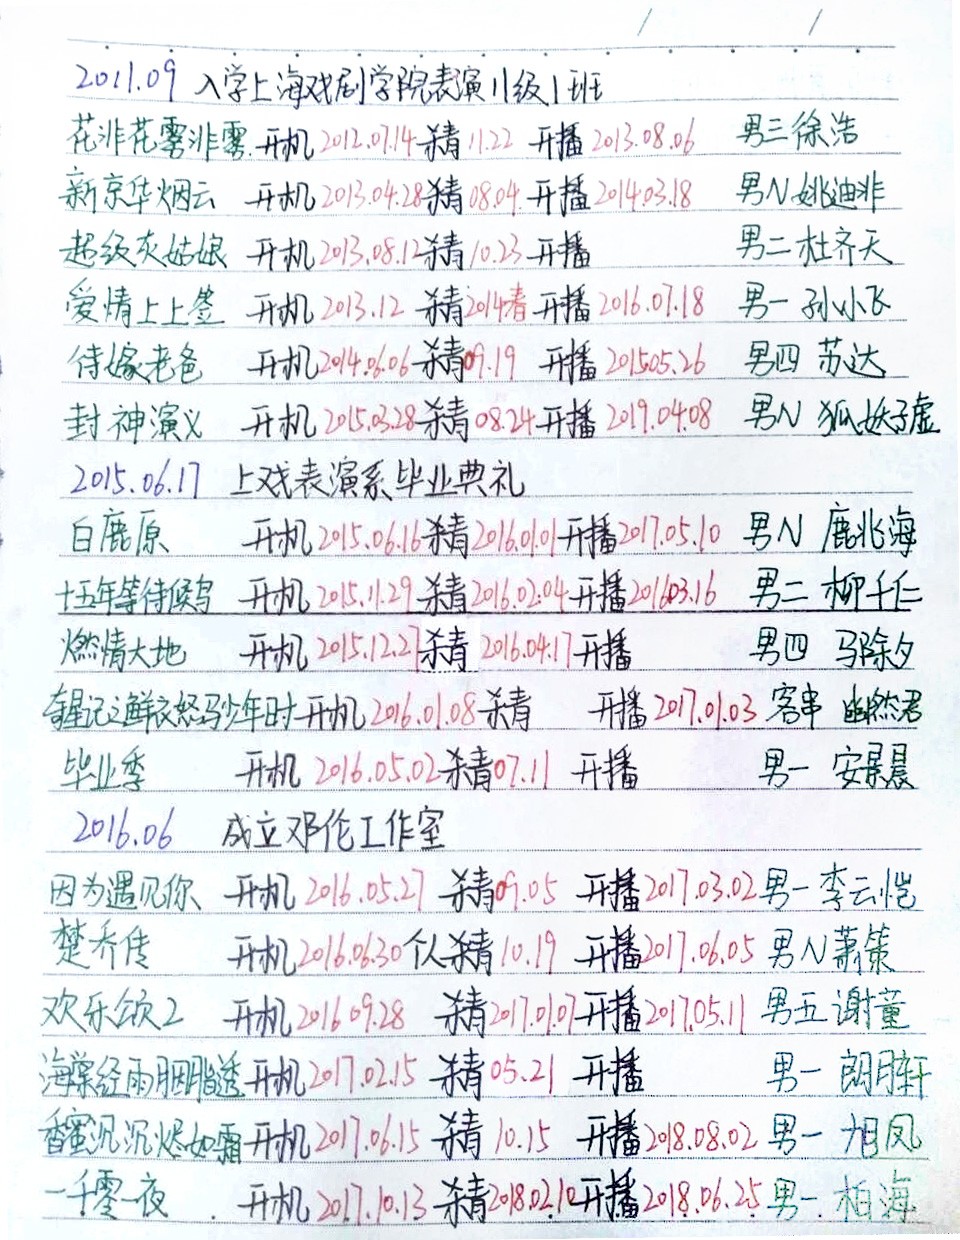 2011.09 入学上海戏剧学院表演11级1班
花非花雾非雾 开机2012.07.14 杀青11.22 开播2013.08.06 男三徐浩
新京华烟云 开机2013.04.28 杀青08.04 开播2014.03.18 男N姚迪非
超级灰姑娘 开机2013.08.12 杀青10.23 开播 男二杜齐天
爱情上上签 开机2013.12 杀青2014春 开播2016.07.18 男一孙小飞
待嫁老爸 开机2014.06.06 杀青09.19 开播201505.26 男四 苏达
封神演义 开机2015.03.28 杀青08.24 开播2019.04.08 男N 狐妖子虚
2015.06.17 上戏表演系毕业典礼
白鹿原 开机2015.06.16 杀青2016.01.01 开播2017.05.10 男N 鹿兆海
十五年等待候鸟 开机2015.11.29 杀青2016.02.04 开播201603.16 男二 柳千仁
燃情大地 开机2015.12.27 杀青2016.04.17 开播 男四 马除夕
奇星记之鲜衣怒马少年时 开机2016.01.08 杀青 开播2017.01.03 客串 幽然君
毕业季 开机2016.05.02 杀青07.11 开播 男一 安景晨
2016.06 成立邓伦工作室
因为遇见你 开机2016.05.27 杀青09.05 开播2017.03.02 男一李云恺
楚乔传 开机2016.06.30 个人杀青10.19 开播2017.06.05 男N萧策
欢乐颂2 开机2016 09.28 杀青2017.01.07 开播2017.05.11 男五谢童
海棠经雨胭脂透 开机2017.02.15 杀青05.21 开播 男一 朗月轩
香蜜沉沉烬如霜 开机2017.06.15 杀青10.15 开播2018.08.02 男一 旭凤
一千零一夜 开机2017.10.13 杀青2018.02.10 开播2018.06.25 男一 柏海